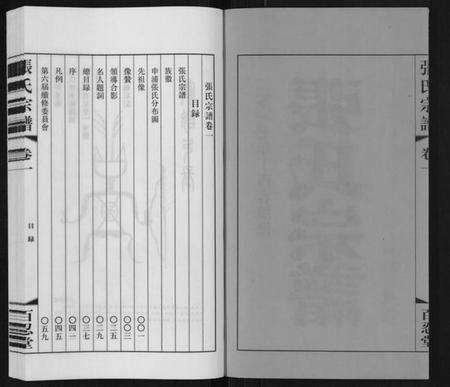 張氏宗譜 卷一
百忍堂
張氏宗譜卷一
目録
張氏宗譜
族徽
申浦張氏分布圖
先祖像 〇〇一
像贊 〇〇三
領導合影 〇二五
名人題詞 〇二九
總目録 〇三七
序 〇四一
凡例 〇四五
第六屆續修委員會 〇五九
張氏宗譜 卷一 目録 百忍堂